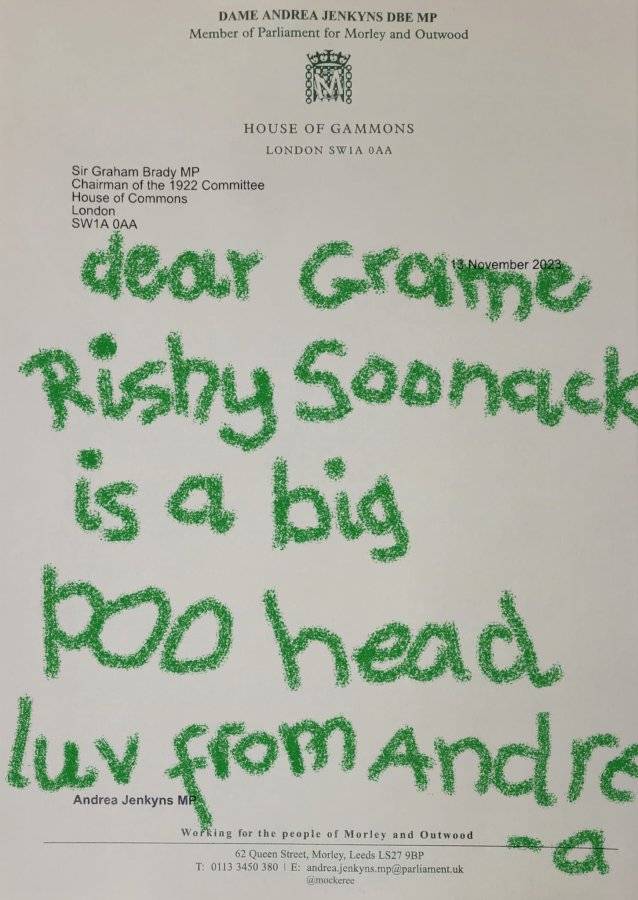 DAME ANDREA JENKYNS DBE MP
Member of Parliament for Morley and Outwood
HOUSE OF GAMMONS
LONDON SW1A 0AA
Sir Graham Brady MP
Chairman of the 1922 Committee
House of Commons
London
SW1A 0AA
13 November 2023
dear Grame
Rishy Soonack
is a big
poo head
luv from Andre
-a
Andrea Jenkyns MP
Working for the people of Morley and Outwood
62 Queen Street, Morley, Leeds LS27 9BP
T: 0113 3450 380 | E: andrea.jenkyns.mp@parliament.uk
@mockeree